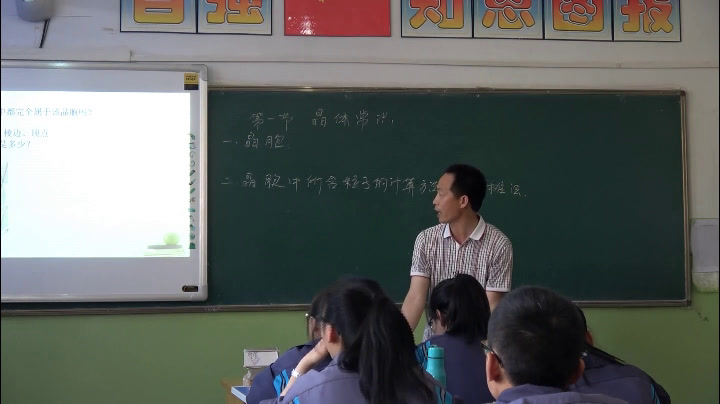 自强
知恩图报
都完全属于该晶胞吗?
棱边、顶点
是多少?
第一节 晶体常识
一、晶胞
二、晶胞中所含粒子的计算方